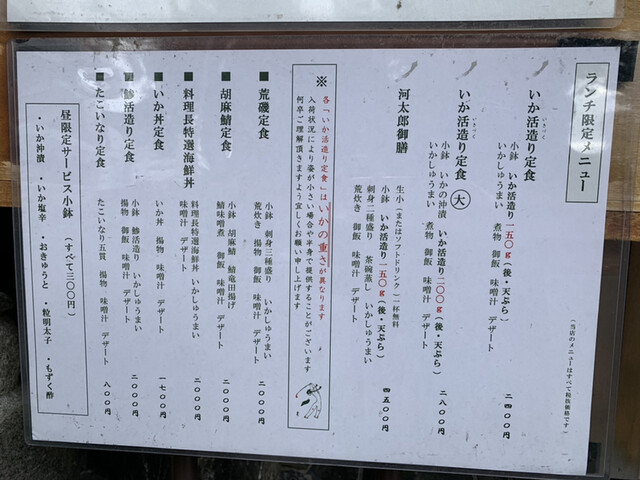 ランチ限定メニュー
（当店のメニューはすべて税抜価格です）
いか活造り定食
小鉢 いか活造り一五〇g（後・天ぷら）
いかしゅうまい 煮物 御飯 味噌汁 デザート
二四〇〇円
いか活造り定食 大
小鉢 いかの沖漬 いか活造り二〇〇g（後・天ぷら）
いかしゅうまい 煮物 御飯 味噌汁 デザート
二八〇〇円
河太郎御膳
生小（またはソフトドリンク）一杯無料
小鉢 いか活造り一五〇g（後・天ぷら）
刺身二種盛り 茶碗蒸し いかしゅうまい
荒炊き 御飯 味噌汁 デザート
四五〇〇円
※
各「いか活造り定食」はいかの重さが異なります
入荷状況により姿が小さい場合や半身で提供することがございます
何卒ご理解頂きますよう宜しくお願い申し上げます
■荒磯定食
小鉢 刺身三種盛り いかしゅうまい
荒炊き 揚物 御飯 味噌汁 デザート
二〇〇〇円
■胡麻鯖定食
小鉢 胡麻鯖 鯖竜田揚げ
鯖味噌煮 御飯 味噌汁 デザート
二〇〇〇円
■料理長特選海鮮丼
料理長特選海鮮丼 いかしゅうまい
味噌汁 デザート
二〇〇〇円
■いか丼定食
いか丼 揚物 味噌汁 デザート
一七〇〇円
■鯵活造り定食
小鉢 鯵活造り いかしゅうまい
揚物 御飯 味噌汁 デザート
二〇〇〇円
■たこいなり定食
たこいなり五貫 揚物 味噌汁 デザート
八〇〇円
昼限定サービス小鉢（すべて三〇〇円）
・いか沖漬 ・いか塩辛 ・おきゅうと ・粒明太子 ・もずく酢